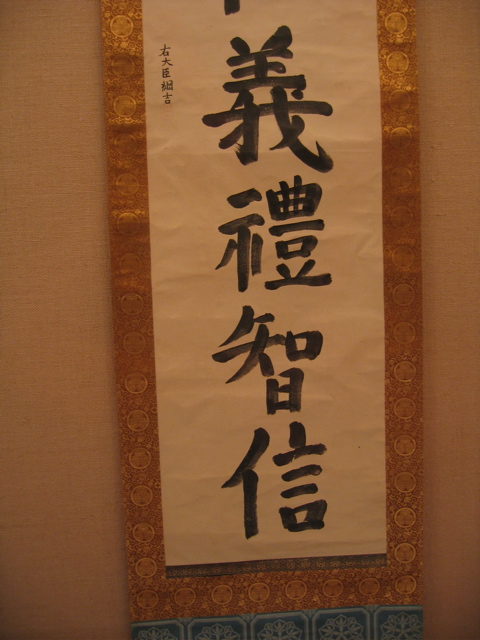 義禮智信
右大臣綱吉